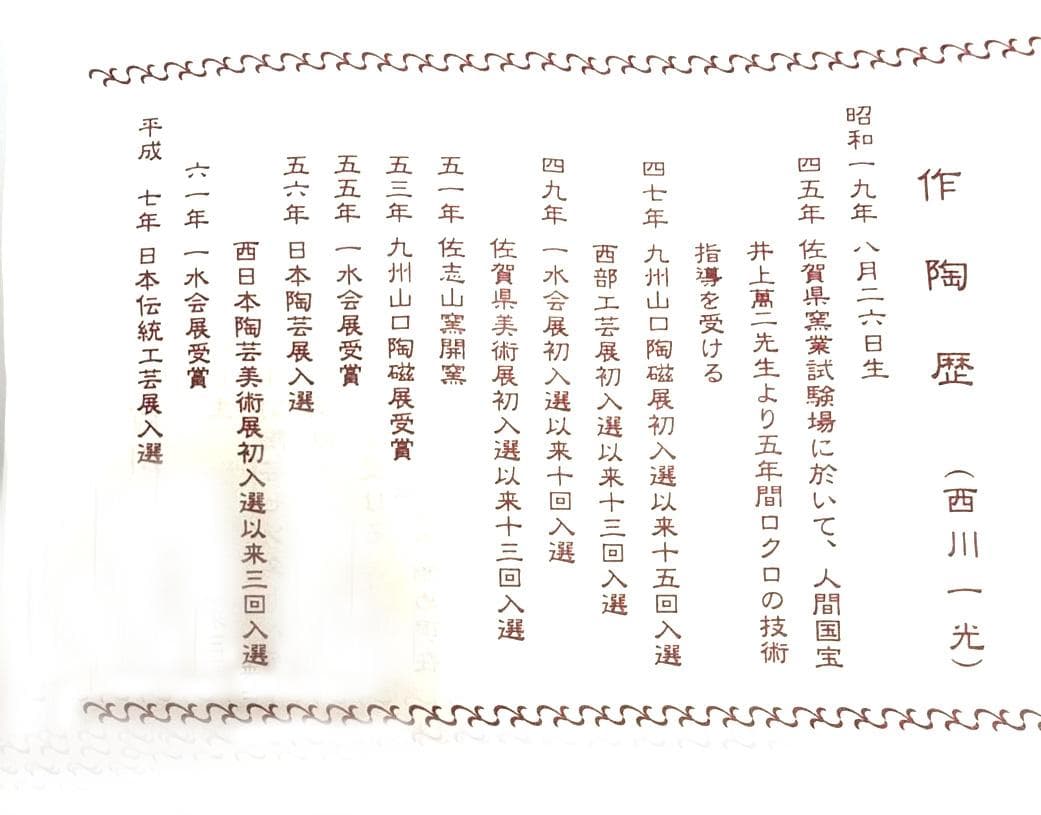 作陶歴（西川一光）
昭和一九年 八月二六日生
四五年 佐賀県窯業試験場に於いて、人間国宝
井上萬二先生より五年間ロクロの技術
指導を受ける
四七年 九州山口陶磁展初入選以来十五回入選
西部工芸展初入選以来十三回入選
四九年 一水会展初入選以来十回入選
佐賀県美術展初入選以来十三回入選
五一年 佐志山窯開窯
五三年 九州山口陶磁展受賞
五五年 一水会展受賞
五六年 日本陶芸展入選
西日本陶芸美術展初入選以来三回入選
六一年 一水会展受賞
平成 七年 日本伝統工芸展入選